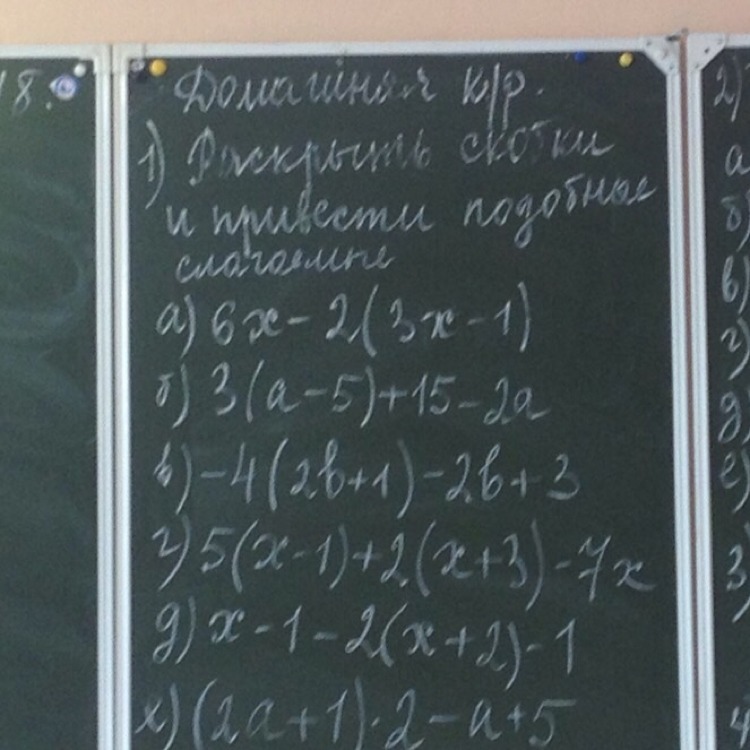 18.
Домашняя к/р.
1) Раскрыть скобки
и привести подобные
слагаемые
а) 6x - 2(3x - 1)
б) 3(a - 5) + 15 - 2a
в) -4(2b + 1) - 2b + 3
г) 5(x - 1) + 2(x + 3) - 7x
д) x - 1 - 2(x + 2) - 1
ж) (2a + 1) · 2 - a + 5
2)
а
б)
в)
г)
д
е)
3